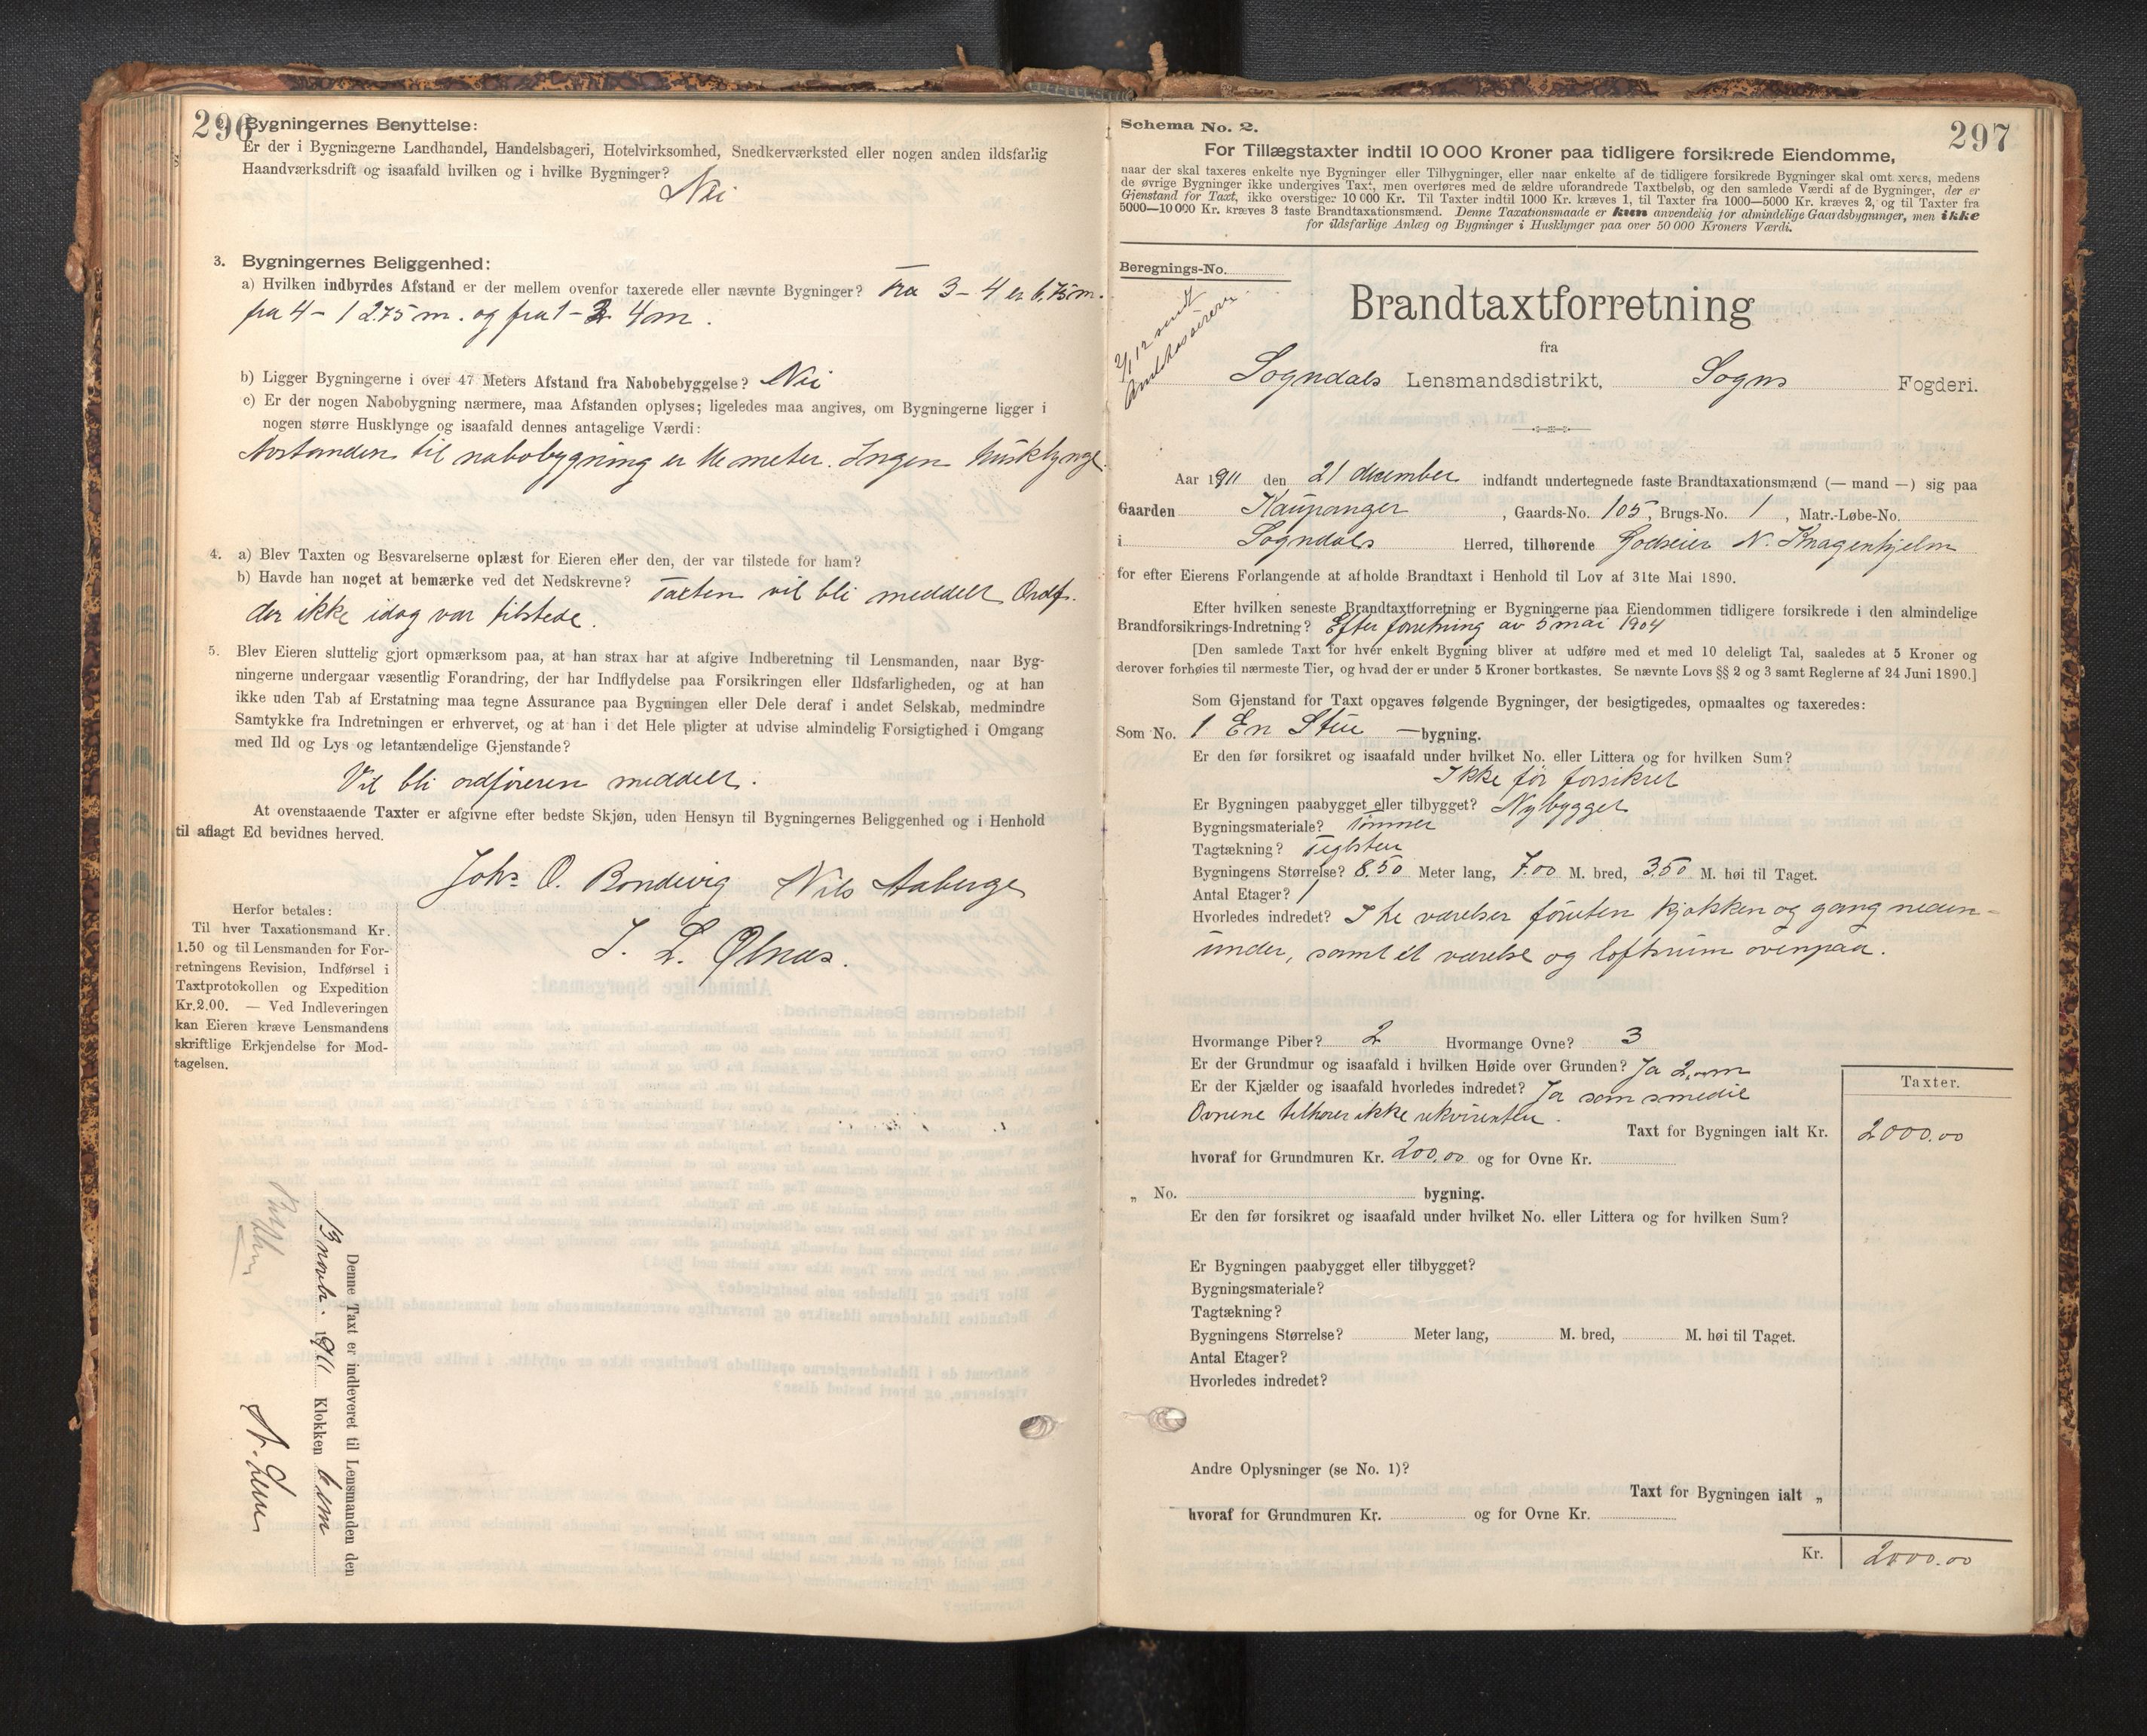 296
2. Bygningernes Benyttelse:
Er der i Bygningerne Landhandel, Handelsbageri, Hotelvirksomhed, Snedkerværksted eller nogen anden ildsfarlig
Haandværksdrift og isaafald hvilken og i hvilke Bygninger?
Nei
3. Bygningernes Beliggenhed:
a) Hvilken indbyrdes Afstand er der mellem ovenfor taxerede eller nævnte Bygninger? Fra 3-4 er 6.75 m.
fra 4 - 1 2.75 m. og fra 1 - 2 4 m.
b) Ligger Bygningerne i over 47 Meters Afstand fra Nabobebyggelse? Nei
c) Er der nogen Nabobygning nærmere, maa Afstanden oplyses; ligeledes maa angives, om Bygningerne ligger i
nogen større Husklynge og isaafald dennes antagelige Værdi:
Avstanden til nabobygning er 11 meter. Ingen husklynge
4. a) Blev Taxten og Besvarelserne oplæst for Eieren eller den, der var tilstede for ham?
b) Havde han noget at bemærke ved det Nedskrevne? Taxten vil bli meddelt Ordf.
der ikke idag var tilstede.
5. Blev Eieren sluttelig gjort opmærksom paa, at han strax har at afgive Indberetning til Lensmanden, naar Byg-
ningerne undergaar væsentlig Forandring, der har Indflydelse paa Forsikringen eller Ildsfarligheden, og at han
ikke uden Tab af Erstatning maa tegne Assurance paa Bygningen eller Dele deraf i andet Selskab, medmindre
Samtykke fra Indretningen er erhvervet, og at han i det Hele pligter at udvise almindelig Forsigtighed i Omgang
med Ild og Lys og letantændelige Gjenstande?
Vil bli ordføreren meddelt.
At ovenstaaende Taxter er afgivne efter bedste Skjøn, uden Hensyn til Bygningernes Beliggenhed og i Henhold
til aflagt Ed bevidnes herved.
Johs O. Bondevig Nils Aaberge
I. L. Ølnæs.
Herfor betales:
Til hver Taxationsmand Kr.
1.50 og til Lensmanden for For-
retningens Revision, Indførsel i
Taxtprotokollen og Expedition
Kr. 2.00. — Ved Indleveringen
kan Eieren kræve Lensmandens
skriftlige Erkjendelse for Mod-
tagelsen.
Denne Taxt er indleveret til Lensmanden den
13 novbr. 1911 Klokken 6 em
297
Schema No. 2.
For Tillægstaxter indtil 10 000 Kroner paa tidligere forsikrede Eiendomme,
naar der skal taxeres enkelte nye Bygninger eller Tilbygninger, eller naar enkelte af de tidligere forsikrede Bygninger skal omtaxeres, medens
de øvrige Bygninger ikke undergives Taxt, men overføres med de ældre uforandrede Taxtbeløb, og den samlede Værdi af de Bygninger, der er
Gjenstand for Taxt, ikke overstiger 10 000 Kr. Til Taxter indtil 1000 Kr. kræves 1, til Taxter fra 1000—5000 Kr. kræves 2, og til Taxter fra
5000—10 000 Kr. kræves 3 faste Brandtaxationsmænd. Denne Taxationsmaade er kun anvendelig for almindelige Gaardsbygninger, men ikke
for ildsfarlige Anlæg og Bygninger i Husklynger paa over 50 000 Kroners Værdi.
Beregnings-No.
2/12 sendt
Amtskassereren
Brandtaxtforretning
fra
Sogndals Lensmandsdistrikt, Sogns Fogderi.
Aar 1911 den 21 december indfandt undertegnede faste Brandtaxationsmænd (— mand —) sig paa
Gaarden Kaupanger, Gaards-No. 105, Brugs-No. 1, Matr.-Løbe-No.
i Sogndals Herred, tilhørende Godseier N. Knagenhjelm
for efter Eierens Forlangende at afholde Brandtaxt i Henhold til Lov af 31te Mai 1890.
Efter hvilken seneste Brandtaxtforretning er Bygningerne paa Eiendommen tidligere forsikrede i den almindelige
Brandforsikrings-Indretning? Efter forretning av 5 mai 1904
[Den samlede Taxt for hver enkelt Bygning bliver at udføre med et med 10 deleligt Tal, saaledes at 5 Kroner og
derover forhøies til nærmeste Tier, og hvad der er under 5 Kroner bortkastes. Se nævnte Lovs §§ 2 og 3 samt Reglerne af 24 Juni 1890.]
Som Gjenstand for Taxt opgaves følgende Bygninger, der besigtigedes, opmaaltes og taxeredes:
Som No. 1 En Stue — bygning.
Er den før forsikret og isaafald under hvilket No. eller Littera og for hvilken Sum?
Ikke før forsikret
Er Bygningen paabygget eller tilbygget? Nybygget
Bygningsmateriale? Tømmer
Tagtækning? Teglsten
Bygningens Størrelse? 8.50 Meter lang, 7.00 M. bred, 3.50 M. høi til Taget.
Antal Etager? 1
Hvorledes indredet? I tre værelser foruten kjøkken og gang neden-
under, samt et værelse og loftsrum ovenpaa.
Hvormange Piber? 2 Hvormange Ovne? 3
Er der Grundmur og isaafald i hvilken Høide over Grunden? Ja 2,00 m
Er der Kjælder og isaafald hvorledes indredet? Ja som smedie
Ovnene tilhører ikke rekvirenten.
Taxter.
Taxt for Bygningen ialt Kr. 2000.00
hvoraf for Grundmuren Kr. 200.00 og for Ovne Kr.
„ No. bygning.
Er den før forsikret og isaafald under hvilket No. eller Littera og for hvilken Sum?
Er Bygningen paabygget eller tilbygget?
Bygningsmateriale?
Tagtækning?
Bygningens Størrelse? Meter lang, M. bred, M. høi til Taget.
Antal Etager?
Hvorledes indredet?
Andre Oplysninger (se No. 1)?
Taxt for Bygningen ialt „
hvoraf for Grundmuren Kr. og for Ovne Kr.
Kr. 2000.00